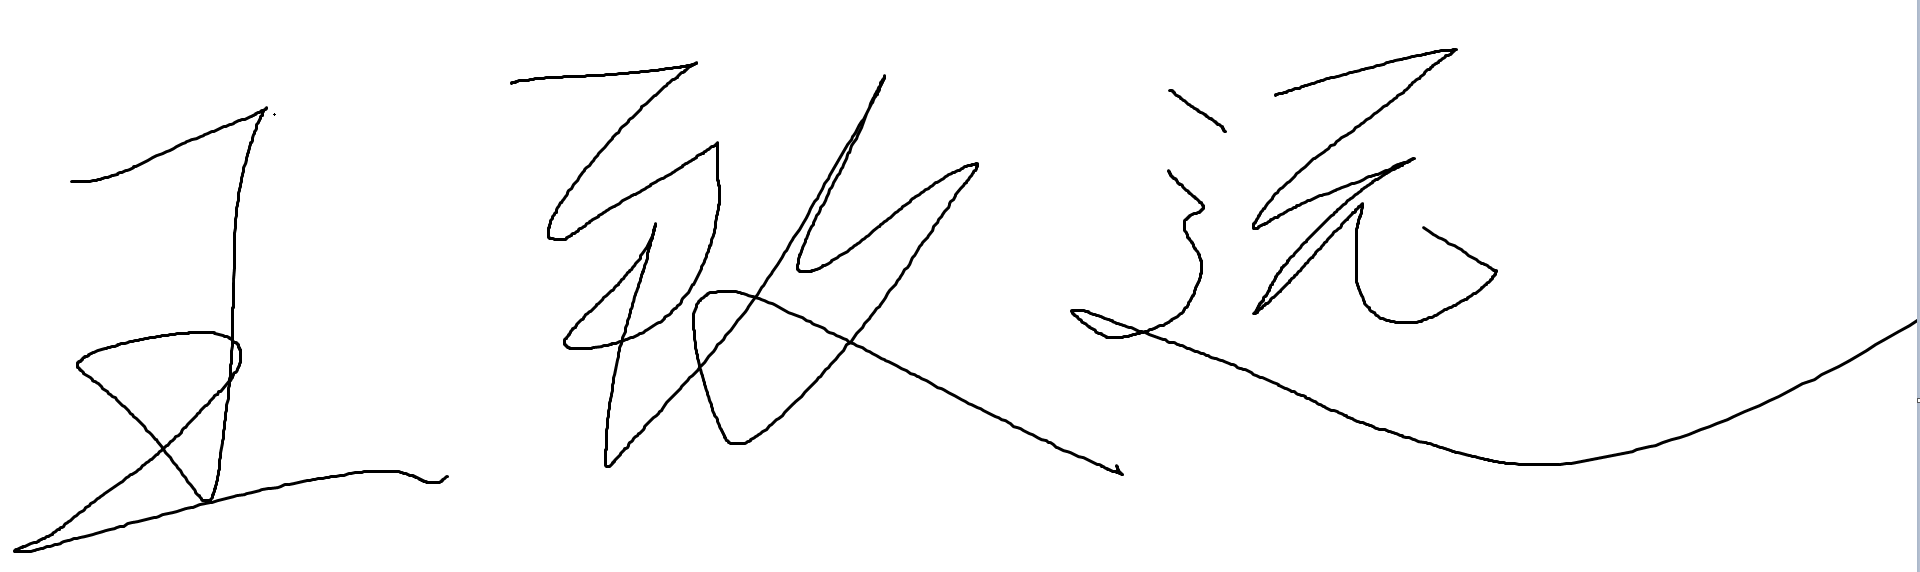 王致远